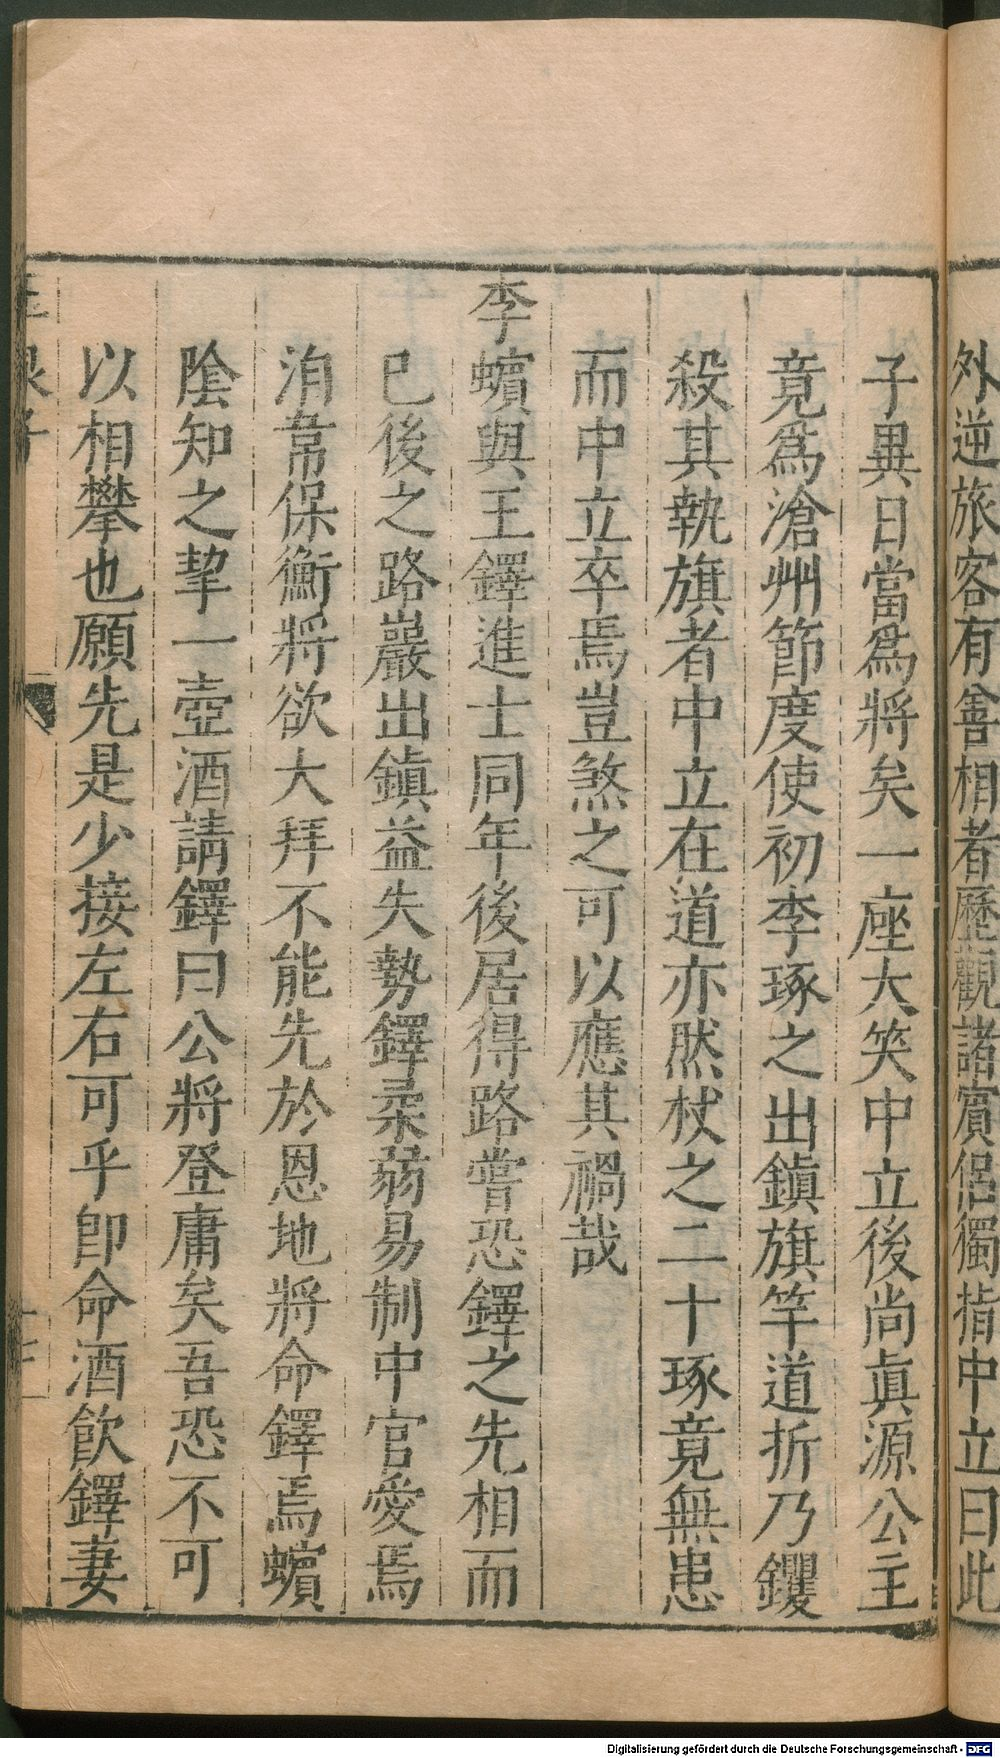 外逆旅客有善相者歷觀諸賓侶獨指中立曰此
子異日當爲將矣一座大笑中立後尚眞源公主
竟爲滄州節度使初李琢之出鎭旗竿道折乃钁
殺其執旗者中立在道亦然杖之二十琢竟無患
而中立卒焉豈煞之可以應其禍哉
李蠙與王鐸進士同年後居得路嘗恐鐸之先相而
已後之路巖出鎭益失勢鐸柔弱易制中官愛焉
洎韋保衡將欲大拜不能先於恩地將命鐸焉蠙
陰知之挈一壺酒請鐸曰公將登庸矣吾恐不可
以相攀也願先是少接左右可乎卽命酒飮鐸妻
Digitalisierung gefördert durch die Deutsche Forschungsgemeinschaft - DFG